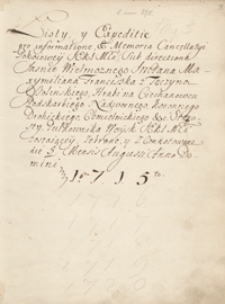 Listy, y Expeditie
pro informatione, et Memoria Cancellaryi
Pokoiowey JKMsci, Sub directione
Jasnie Wielmoznego Stefana Ma-
xymiliana Franciszka z Tęczyna
Ossolinskiego, Hrabi na Ciechanowcu
Podskarbiego Nadwornego, Koronnego
Drohickiego, Chmielnickiego &c. Sta-
rosty, Pułkownika Woysk JKMsci
zebrane, y
die 5 Mensis Augusti Anno Do-
mini
1715to